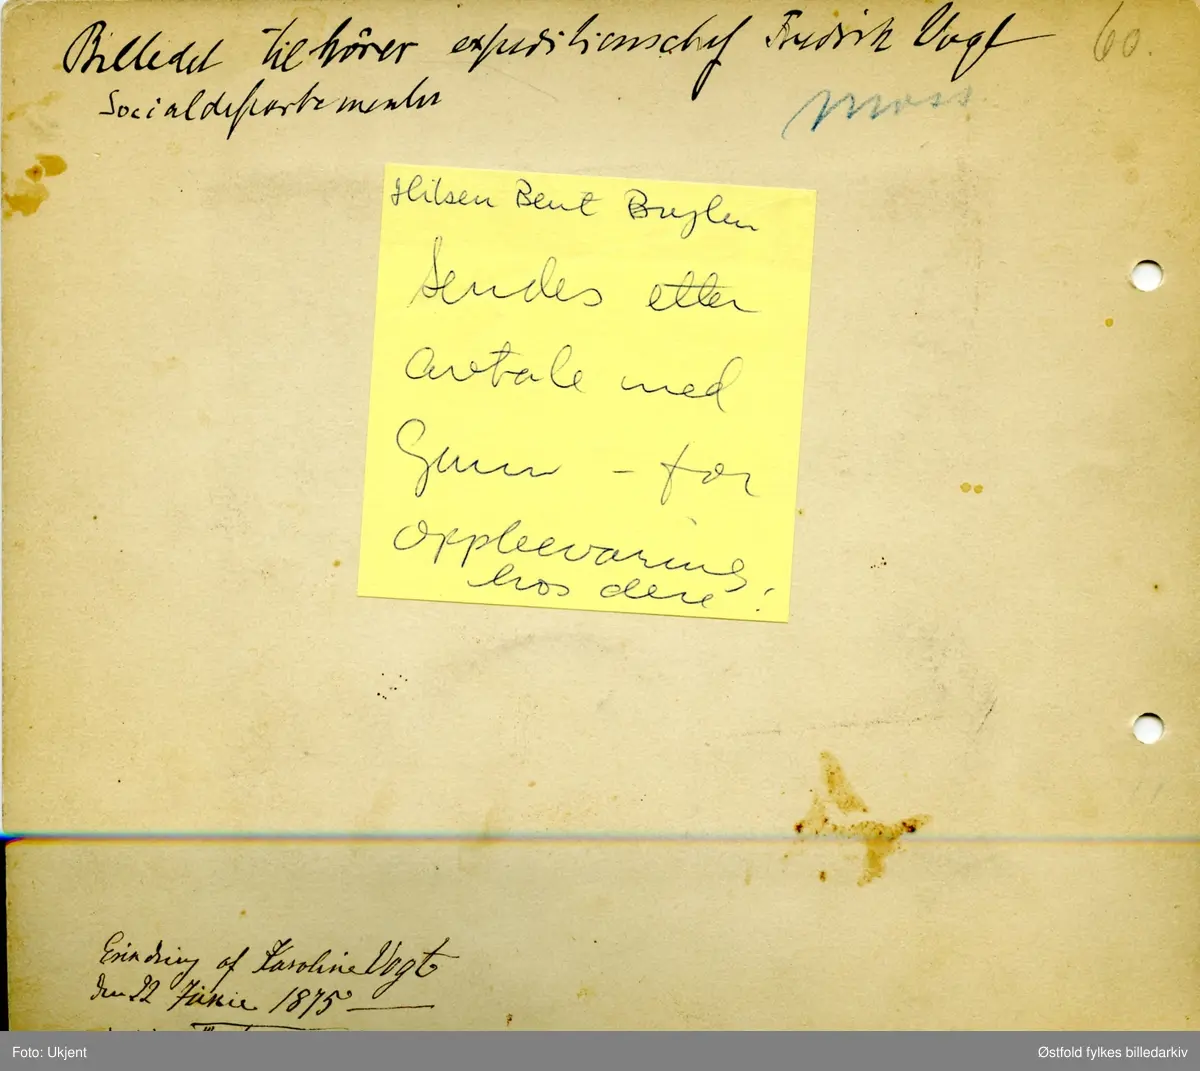 Billedet tilhörer expeditionschef Fredrik Vogt 60.
Socialdepartementet
Moss.
Hilsen Bent
Sendes etter
avtale med
Gunn - for
oppbevaring
hos dere!
Erindring af Karoline Vogt
den 22 Junie 1875
Foto: Ukjent
Østfold fylkes billedarkiv